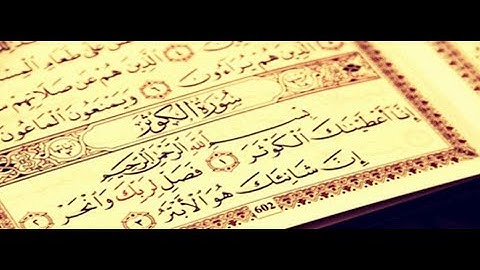 الَّذِينَ هُمْ عَن صَلَاتِهِمْ
الَّذِينَ هُمْ يُرَاءُونَ ٦ وَيَمْنَعُونَ الْمَاعُونَ
سُورَةُ الْكَوْثَرِ
بِسْمِ اللَّهِ الرَّحْمَٰنِ الرَّحِيمِ
إِنَّا أَعْطَيْنَاكَ الْكَوْثَرَ ١ فَصَلِّ لِرَبِّكَ وَانْحَرْ ٢
إِنَّ شَانِئَكَ هُوَ الْأَبْتَرُ ٣
602